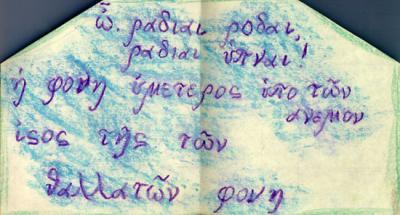 ὦ. ραδιαι ροδαι,
ραδιαι ὑπναι!
ἡ φονη ὑμετερος ὑπο τῶν
ανεμον
ἱσος τῆς τῶν
θαλλατῶν φονη